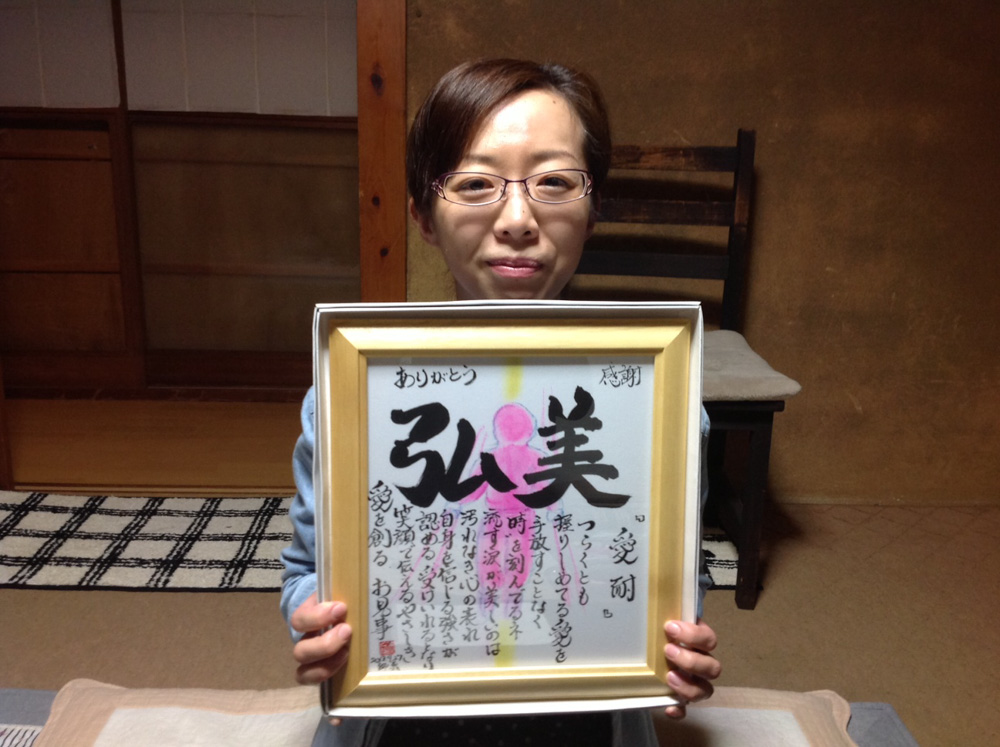 ありがとう
感謝
弘美
『愛耐』
つらくとも
握りしめてる愛を
手放すことなく
時を刻んでるネ
流す涙が美しいのは
汚れなき心の表れ
自身を信じる強さが
認める受けいれるとなり
笑顔で伝えるやさしき
愛を創る お見事